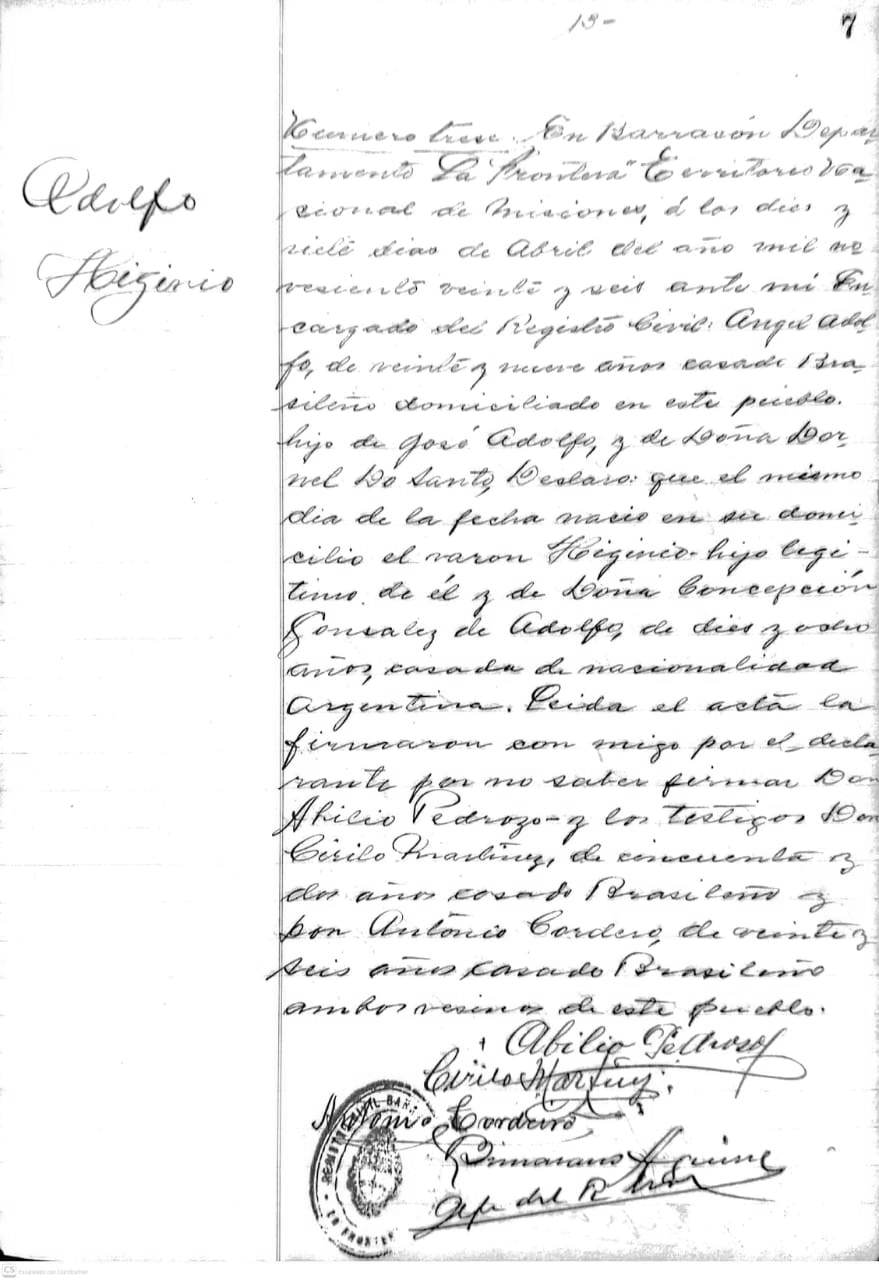 13-
7
Adolfo
Higinio
Numero trese. En Barracón Depar-
tamento "La Frontera" Territorio Na-
cional de Misiones, á los dies y
siete dias de Abril del año mil no
vesiento veinte y seis ante mi En
cargado del Registro Civil: Angel Adol-
fo, de veinte y nueve años casado Bra-
sileño domiciliado en este pueblo.
hijo de José Adolfo, y de Doña Dor-
nel Do Santo, Deslaro: que el mismo
dia de la fecha nacio en su domi-
cilio el varon Higinio- hijo legi-
timo de él y de Doña Concepción
Gonsalez de Adolfo, de dies y ocho
años, casada de nacionalidad
Argentina. Leida el acta la
firmaron con migo por el decla-
rante por no saber firmar Don
Abilio Pedrozo- y los testigos Don
Cirilo Martinez, de cincuenta y
dos años casado Brasileño y
Don Antonio Cordero, de veinte y
seis años casado Brasileño
ambos vesinos de este pueblo.
Abilio Pedroso
Cirilo Martinez
Antonio Cordeiro
Aguirre
Jefe del R
REGISTRO CIVIL BARR
LA FRONTERA
CS